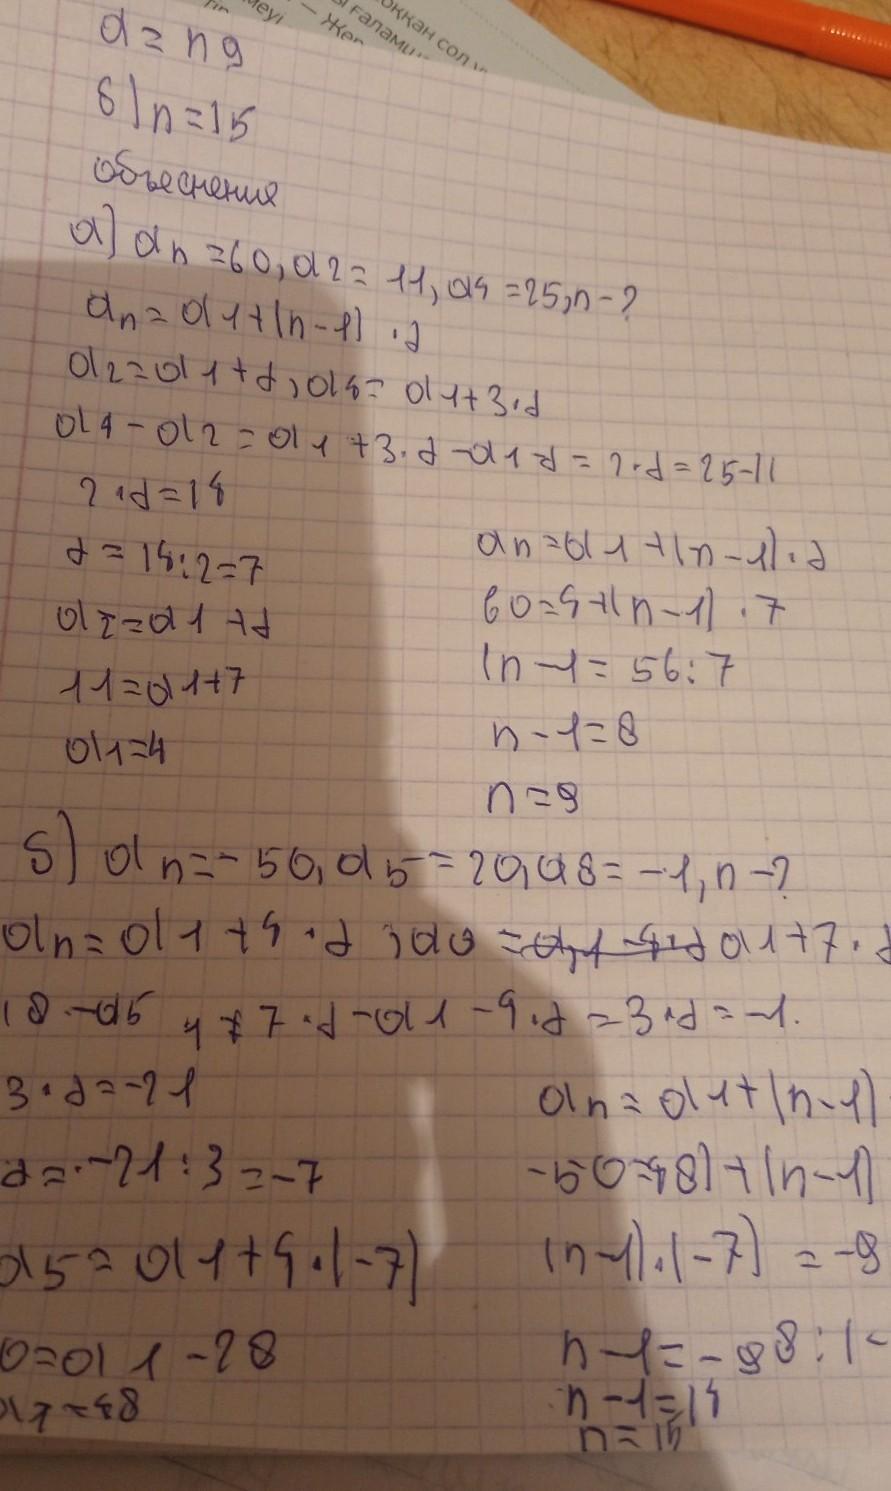 меуі
— Жер
ғалами
оққан сол
a = n 9
б) n = 15
объеснения
а) an = 60, a2 = 11, a4 = 25, n - ?
an = a1 + (n - 1) · d
a2 = a1 + d, a4 = a1 + 3 · d
a4 - a2 = a1 + 3 · d - a1 - d = 2 · d = 25 - 11
2 · d = 14
d = 14 : 2 = 7
a2 = a1 + d
11 = a1 + 7
a1 = 4
an = a1 + (n - 1) · d
60 = 4 + (n - 1) · 7
(n - 1 = 56 : 7
n - 1 = 8
n = 9
б) an = - 50, a5 = 20, a8 = - 1, n - ?
an = a1 + 4 · d ; a8 = a1 + 7 · d
8 - a5 1 + 7 · d - a1 - 4 · d = 3 · d = - 1.
3 · d = - 21
d = - 21 : 3 = - 7
a5 = a1 + 4 · (- 7)
0 = a1 - 28
= 48
an = a1 + (n - 1)
- 50 = 48) + (n - 1)
(n - 1) · (- 7) = - 9
n - 1 = - 98 : (-
n - 1 = 14
n = 15